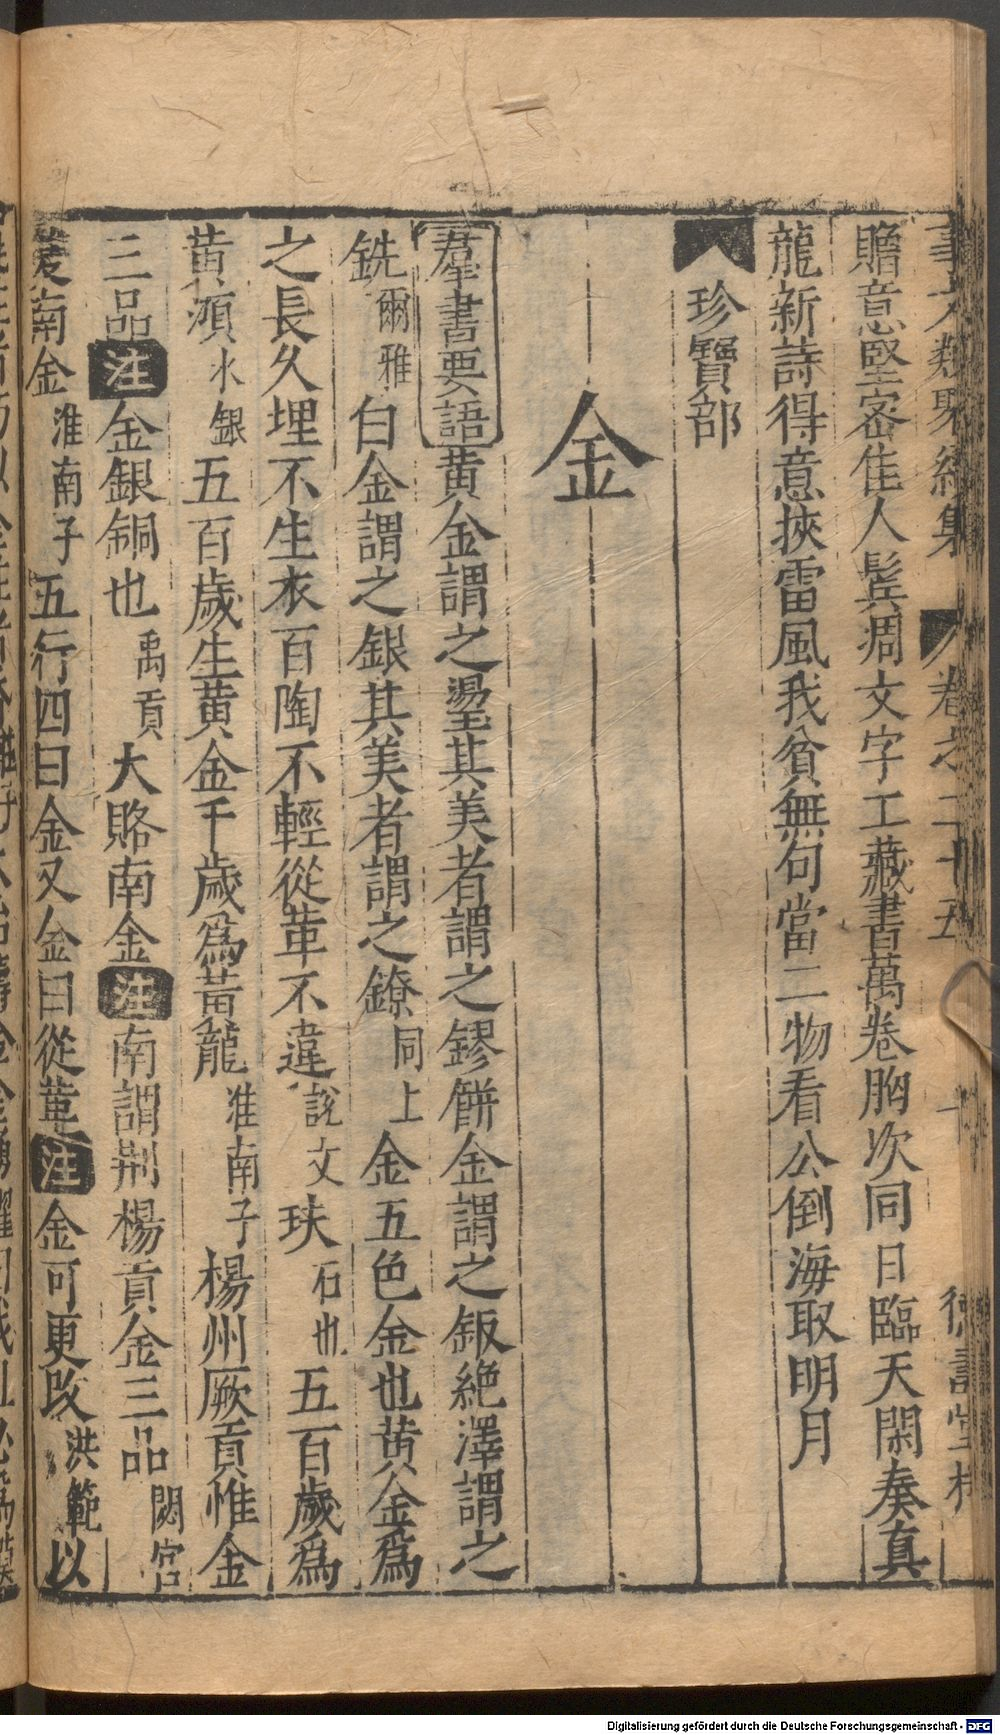 事文類聚續集 卷之二十五 十 德壽堂梓
贍意堅密隹人鬓凋文字工藏書萬卷胸次同日臨天閑奏真
龍新詩得意挾雷風我貧無句當二物看公倒海取明月
珍寶部
金
羣書要語黃金謂之璗其美者謂之鏐餅金謂之鈑絶澤謂之
銑爾雅白金謂之銀其美者謂之鐐同上金五色金也黃金爲
之長久埋不生衣百陶不輕從革不違說文玞石也五百歲爲
黃澒水銀五百歲生黃金千歲爲黃龍淮南子楊州厥貢惟金
三品注金銀銅也禹貢大賂南金注南謂荆楊貢金三品閟宮
爰南金淮南子五行四曰金又金曰從革注金可更改洪範以
Digitalisierung gefördert durch die Deutsche Forschungsgemeinschaft - DFG